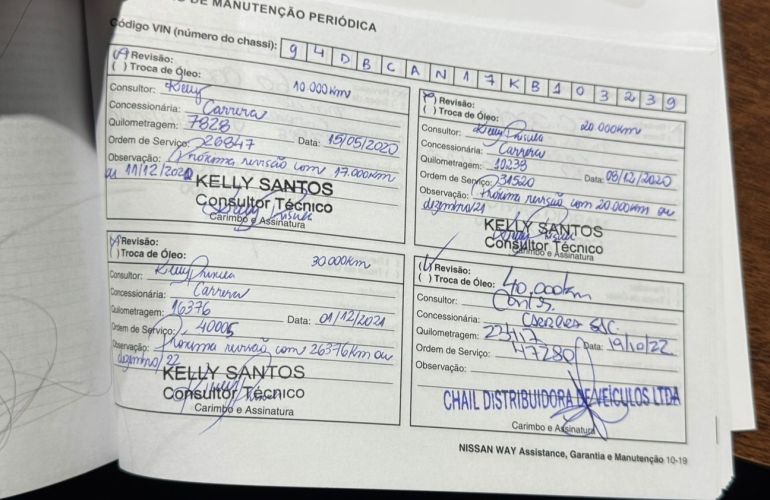 DE MANUTENÇÃO PERIÓDICA
Código VIN (número do chassi): 94DBCAN17KB103239
Revisão: 10.000Km
( ) Troca de Óleo:
Consultor: Kelly
Concessionária: Carrera
Quilometragem: 7828
Ordem de Serviço: 26847 Data: 15/05/2020
Observação: Próxima revisão com 17.000km
ou 11/12/2020
KELLY SANTOS
Consultor Técnico
Carimbo e Assinatura
Revisão: 20.000Km
( ) Troca de Óleo:
Consultor: Kelly Priscila
Concessionária: Carrera
Quilometragem: 10238
Ordem de Serviço: 31520 Data: 08/12/2020
Observação: Próxima revisão com 20.000km ou
dezembro/21
KELLY SANTOS
Consultor Técnico
Carimbo e Assinatura
Revisão: 30.000Km
( ) Troca de Óleo:
Consultor: Kelly Priscila
Concessionária: Carrera
Quilometragem: 16376
Ordem de Serviço: 40005 Data: 01/12/2021
Observação: Próxima revisão com 26376km ou
dezembro/22
KELLY SANTOS
Consultor Técnico
Carimbo e Assinatura
Revisão:
( ) Troca de Óleo: 40.000km
Consultor:
Concessionária: SJC.
Quilometragem: 23117
Ordem de Serviço: 47280 Data: 19/10/22
Observação:
CHAIL DISTRIBUIDORA DE VEÍCULOS LTDA
Carimbo e Assinatura
NISSAN WAY Assistance, Garantia e Manutenção 10-19